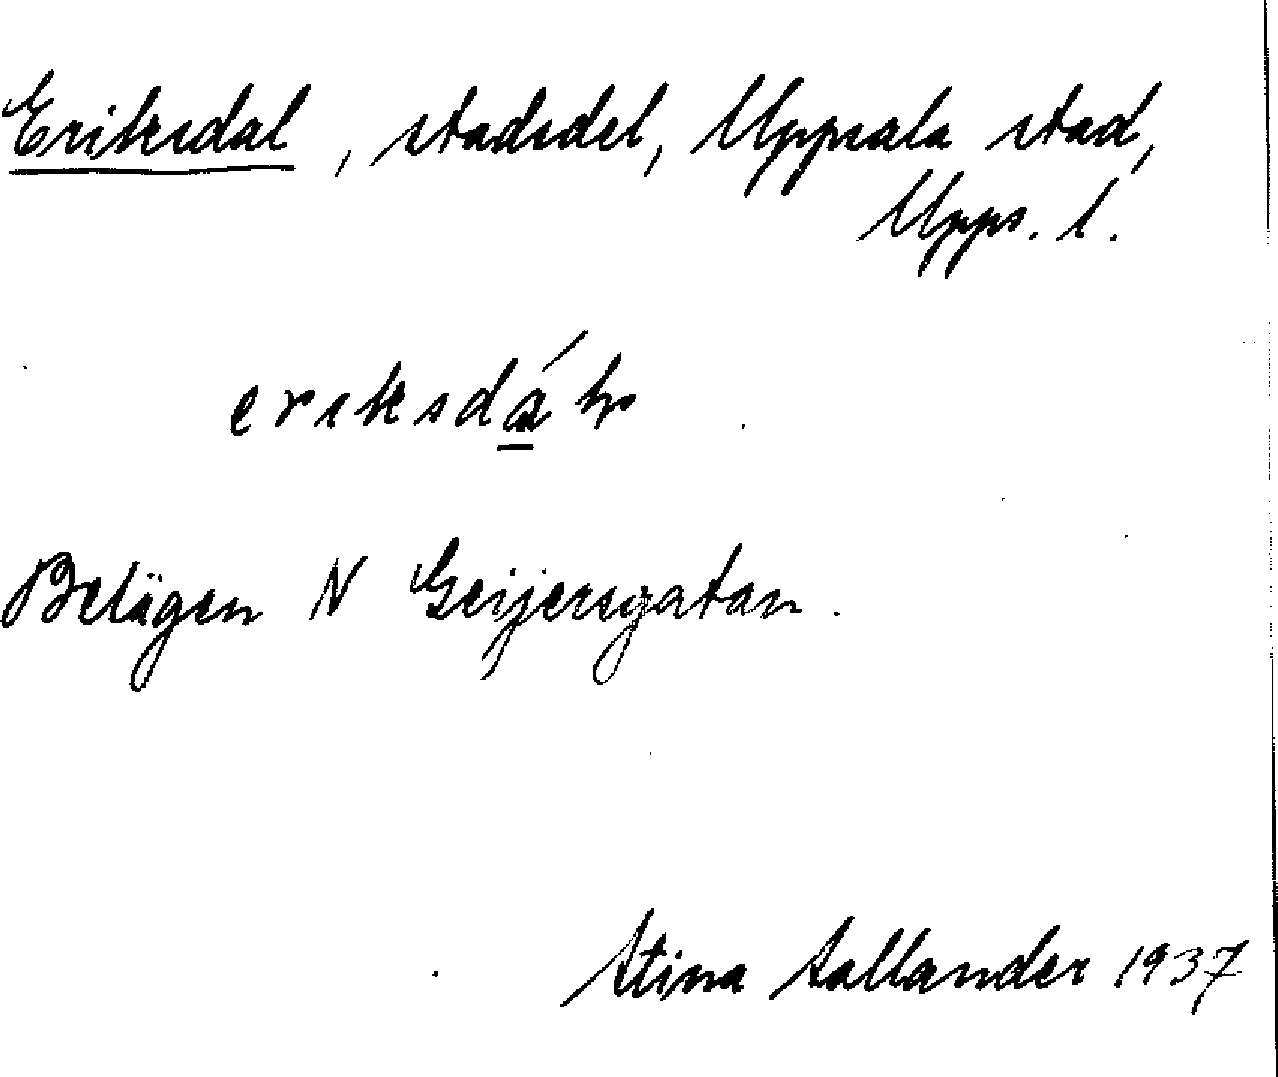 Eriksdal, stadsdel, Uppsala stad,
Upps. l.
Belägen N Geijersgatan.
Stina Sallander 1937